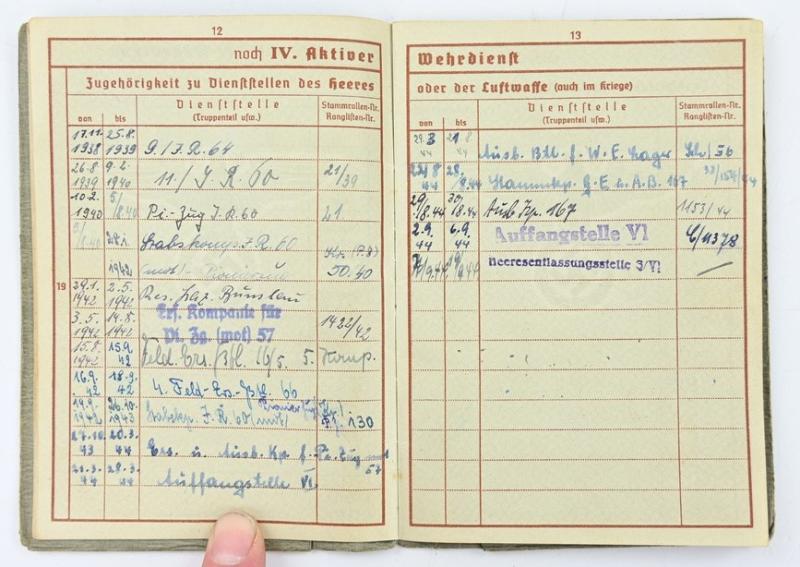 12
noch IV. Aktiver
Zugehörigkeit zu Dienststellen des Heeres
von bis Dienststelle (Truppenteil usw.) Stammrollen-Nr. Ranglisten-Nr.
17.11. 1938 25.8. 1939 9./I.R. 64
26.8. 1939 9.2. 1940 11./I.R. 60 21/39
10.2. 1940 5/8.40 Pi.-Zug I.R. 60 21
5/8.40 1942 Stabskomp. I.R. 60 50.40
19
29.1. 1942 2.5. 1942 Res. Laz. Bunzlau
3.5. 1942 14.8. 1942 Ers. Kompanie für Pi. Zg. (mot) 57 1422/42
15.8. 1942 15.9. 42 Feld. Ers. Btl. 16/5. 5. Komp.
16.9. 42 18.9. 42 4. Feld-Ers.-Btl. 66
19.9. 1942 26.10. 1943 Stabskp. I.R. 60 (mot) 130
27.10. 43 20.3. 44 Ers. u. Ausb. Kp. f. Pi. Zug mot 57
21.3. 44 28.3. 44 Auffangstelle VI
13
Wehrdienst
oder der Luftwaffe (auch im Kriege)
von bis Dienststelle (Truppenteil usw.) Stammrollen-Nr. Ranglisten-Nr.
29.3 44 21 8 44 Ausb. Btl. f. W. E. Lager 56
22/8 44 28. 8.44 Stammkp. G. E. u. A. B. 167
29/8.44 30/8.44 Ausb. Kp. 167 1153/44
2.9. 44 6.9. 44 Auffangstelle VI
Heeresentlassungsstelle 3/VI